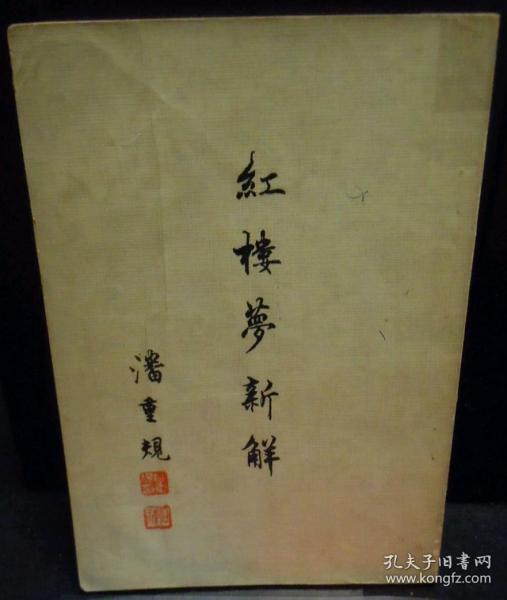 紅樓夢新解
潘重規
孔夫子旧书网
www.kongfz.com